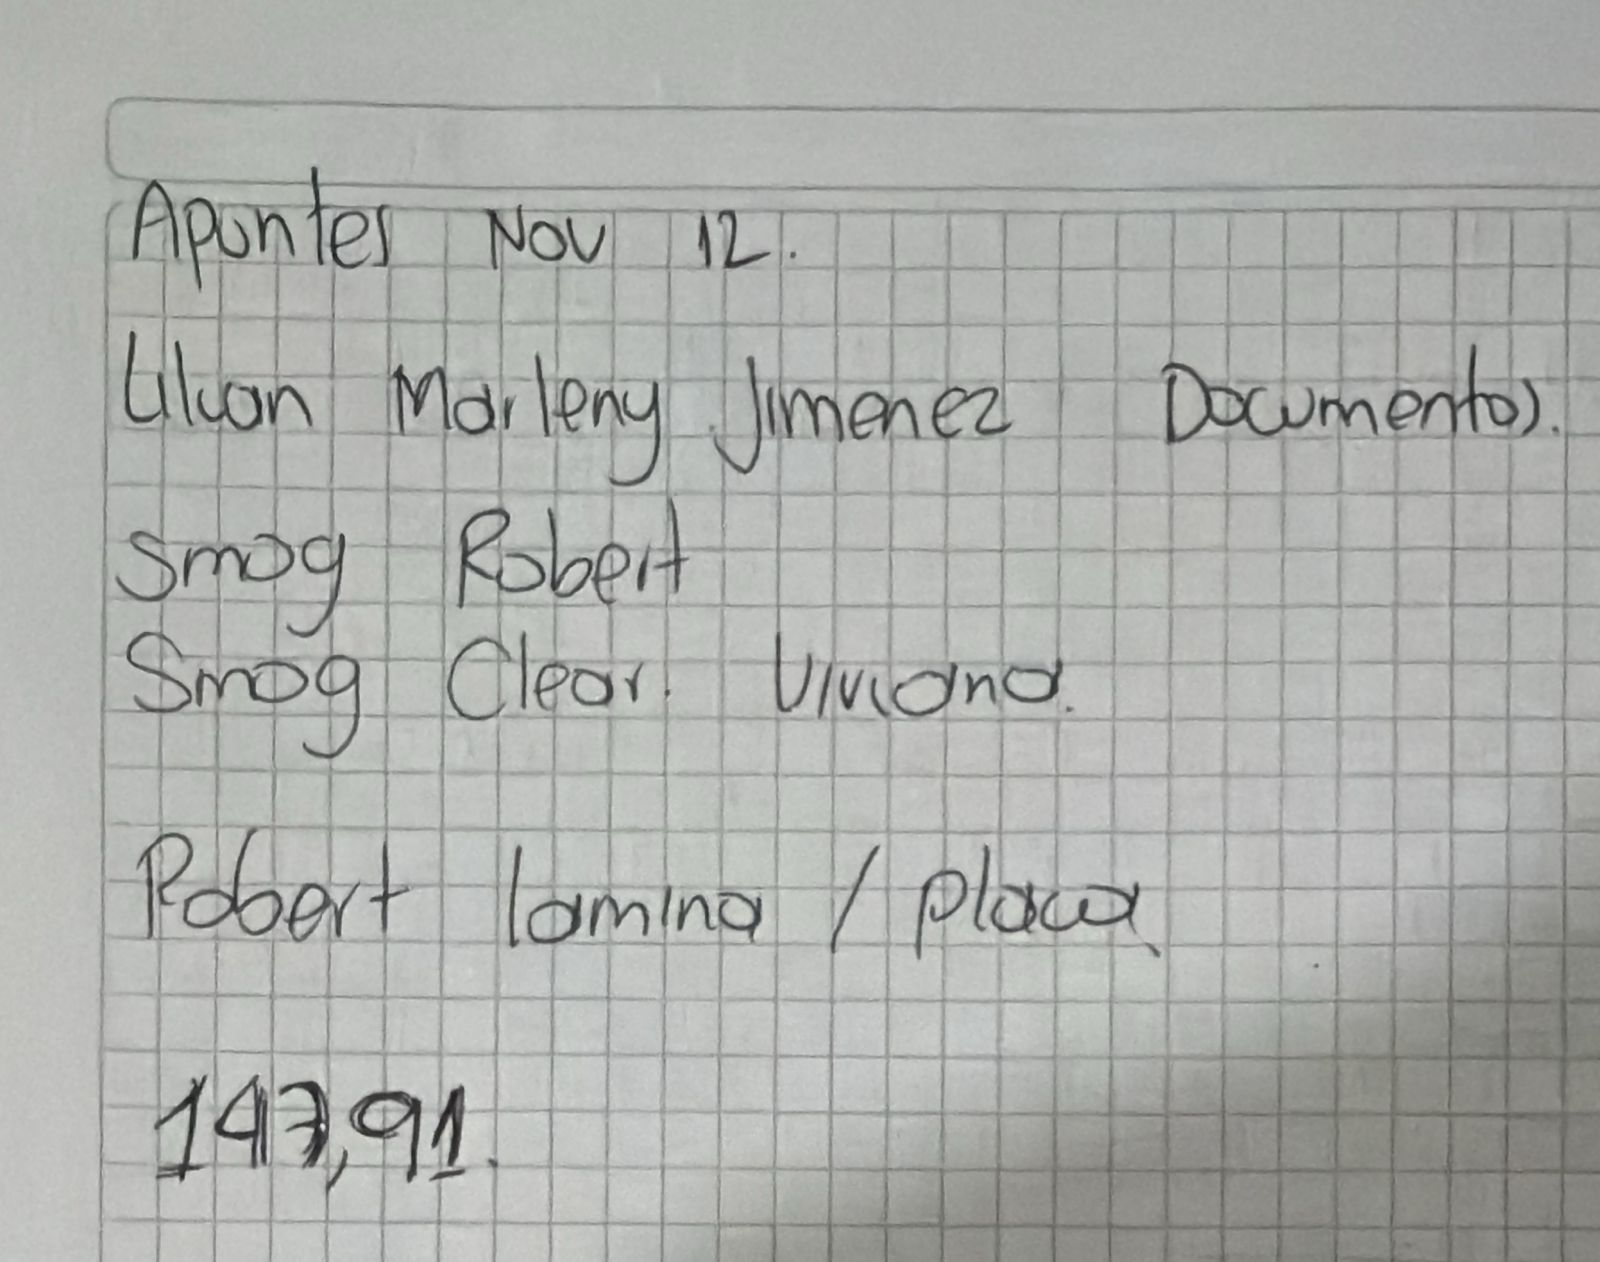 Apuntes Nov 12.
Lilian Marleny Jimenez Documentos.
Smog Robert
Smog Clear. Viviana.
Robert lamina / placa
147,91.